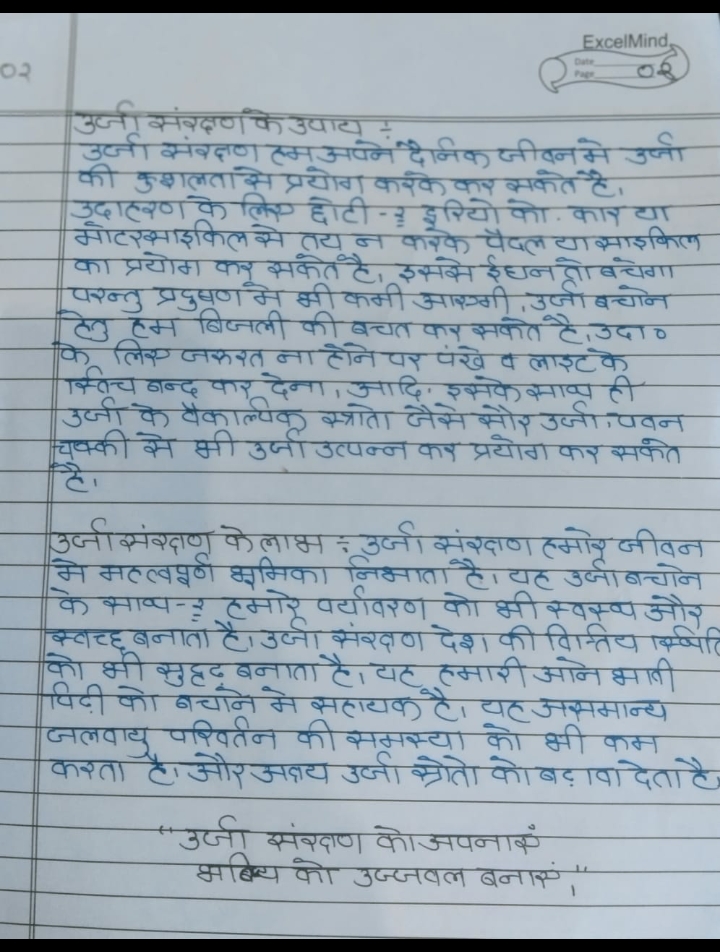 02
ExcelMind
Date
Page 02
उर्जा संरक्षण के उपाय ÷
उर्जा संरक्षण हम अपने दैनिक जीवन मे उर्जा
की कुशलता से प्रयोग करके कर सकते है,
उदाहरण के लिए छोटी-२ दूरियो को. कार या
मोटरसाइकिल से तय न करके पैदल या साइकिल
का प्रयोग कर सकते है, इससे ईंधन तो बचेगा
परन्तु प्रदुषण मे भी कमी आएगी, उर्जा बचाने
हेतु हम बिजली की बचत कर सकते है, उदा०
के लिए जरुरत ना होने पर पंखे व लाइट के
स्विच बन्द कर देना, आदि. इसके साथ ही
उर्जा के वैकाल्पिक स्त्रोतो जैसे सौर उर्जा, पवन
चक्की से भी उर्जा उत्पन्न कर प्रयोग कर सकते
है,
उर्जा संरक्षण के लाभ ÷ उर्जा संरक्षण हमारे जीवन
मे महत्वपूर्ण भूमिका निभाता है। यह उर्जा बचाने
के साथ-२ हमारे पर्यावरण को भी स्वस्थ और
स्वच्छ बनाता है। उर्जा संरक्षण देश की वित्तिय स्थिति
को भी सुदृढ बनाता है, यह हमारी आने वाली
पिढ़ी को बचाने मे सहायक है, यह असमान्य
जलवायु परिवर्तन की समस्या को भी कम
करता है। और अक्षय उर्जा स्रोतो को बढ़ावा देता है,
"उर्जा संरक्षण को अपनाएं
भविष्य को उज्जवल बनाएं,"